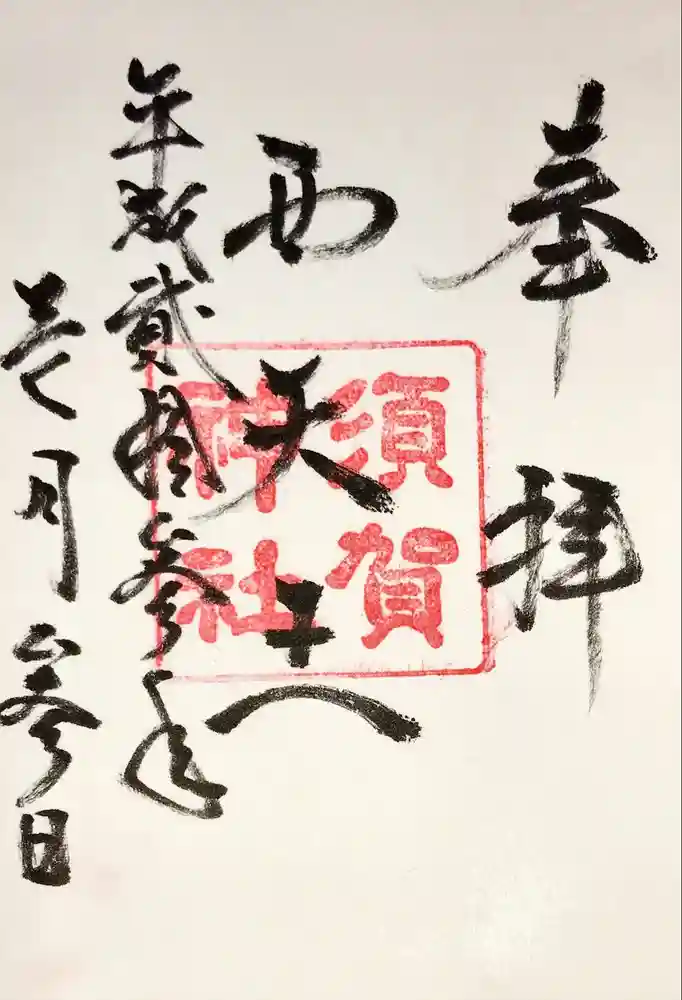 奉拝
須賀
神社
西
天王
平成貮拾参年
壱月参日